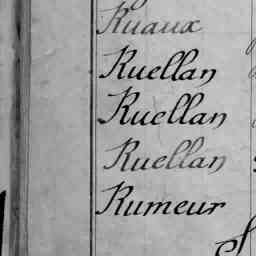 Ruaux
Ruellan
Ruellan
Ruellan
Rumeur